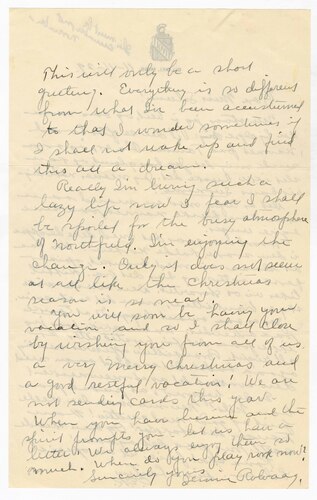 This will only be a short
greeting. Everything is so different
from what I'm been accustomed
to that I wonder sometimes if
I shall not wake up and find
this all a dream.
Really I'm living such a
lazy life now I fear I shall
be spoiled for the busy atmosphere
of Northfield. I'm enjoying the
change. Only it does not seem
at all like the Christmas
season is so near.
You will soon be having your
vacation and so I shall close
by wishing you from all of us
a very merry Christmas and
a good restful vacation! We are
not sending cards this year.
When you have time and the
spirit prompts you let us have a
letter. We always enjoy them so
much. When do you play now?
Sincerely yours,
Jennie Rolvaag.